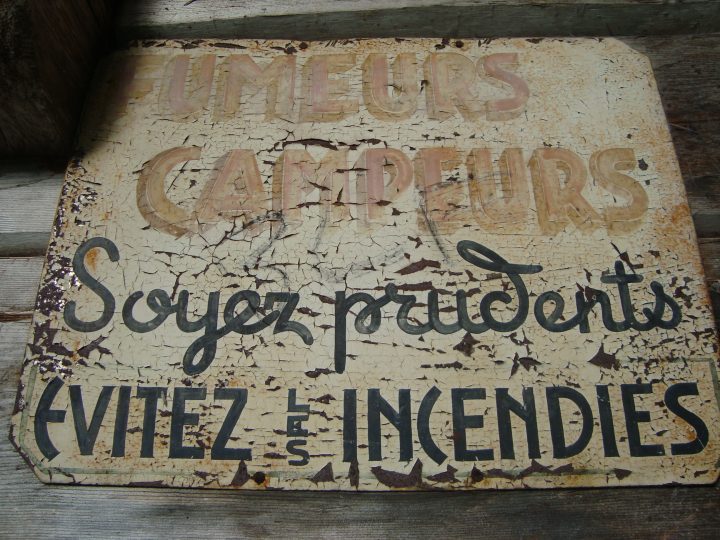 FUMEURS
CAMPEURS
Soyez prudents
EVITEZ LES INCENDIES